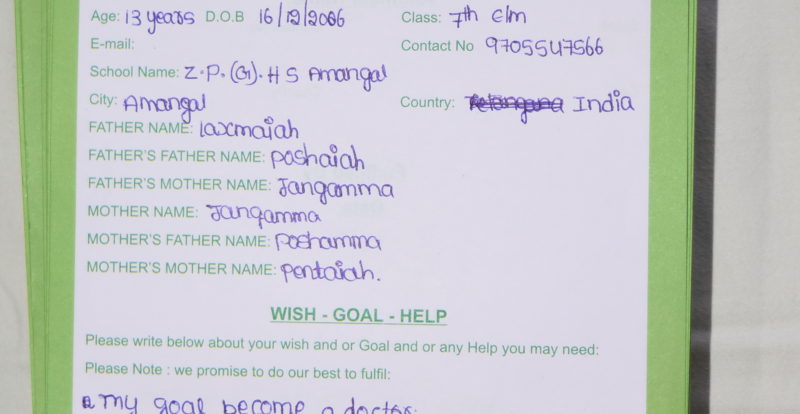 Age: 13 years D.O.B 16/12/2006 Class: 7th E/m
E-mail: Contact No 9705547566
School Name: Z.P.(G).H S Amangal
City: Amangal Country: Telangana India
FATHER NAME: laxmaiah
FATHER'S FATHER NAME: poshaiah
FATHER'S MOTHER NAME: Jangamma
MOTHER NAME: Jangamma
MOTHER'S FATHER NAME: Poshamma
MOTHER'S MOTHER NAME: pentaiah.
WISH - GOAL - HELP
Please write below about your wish and or Goal and or any Help you may need:
Please Note : we promise to do our best to fulfil:
my goal become a doctor.